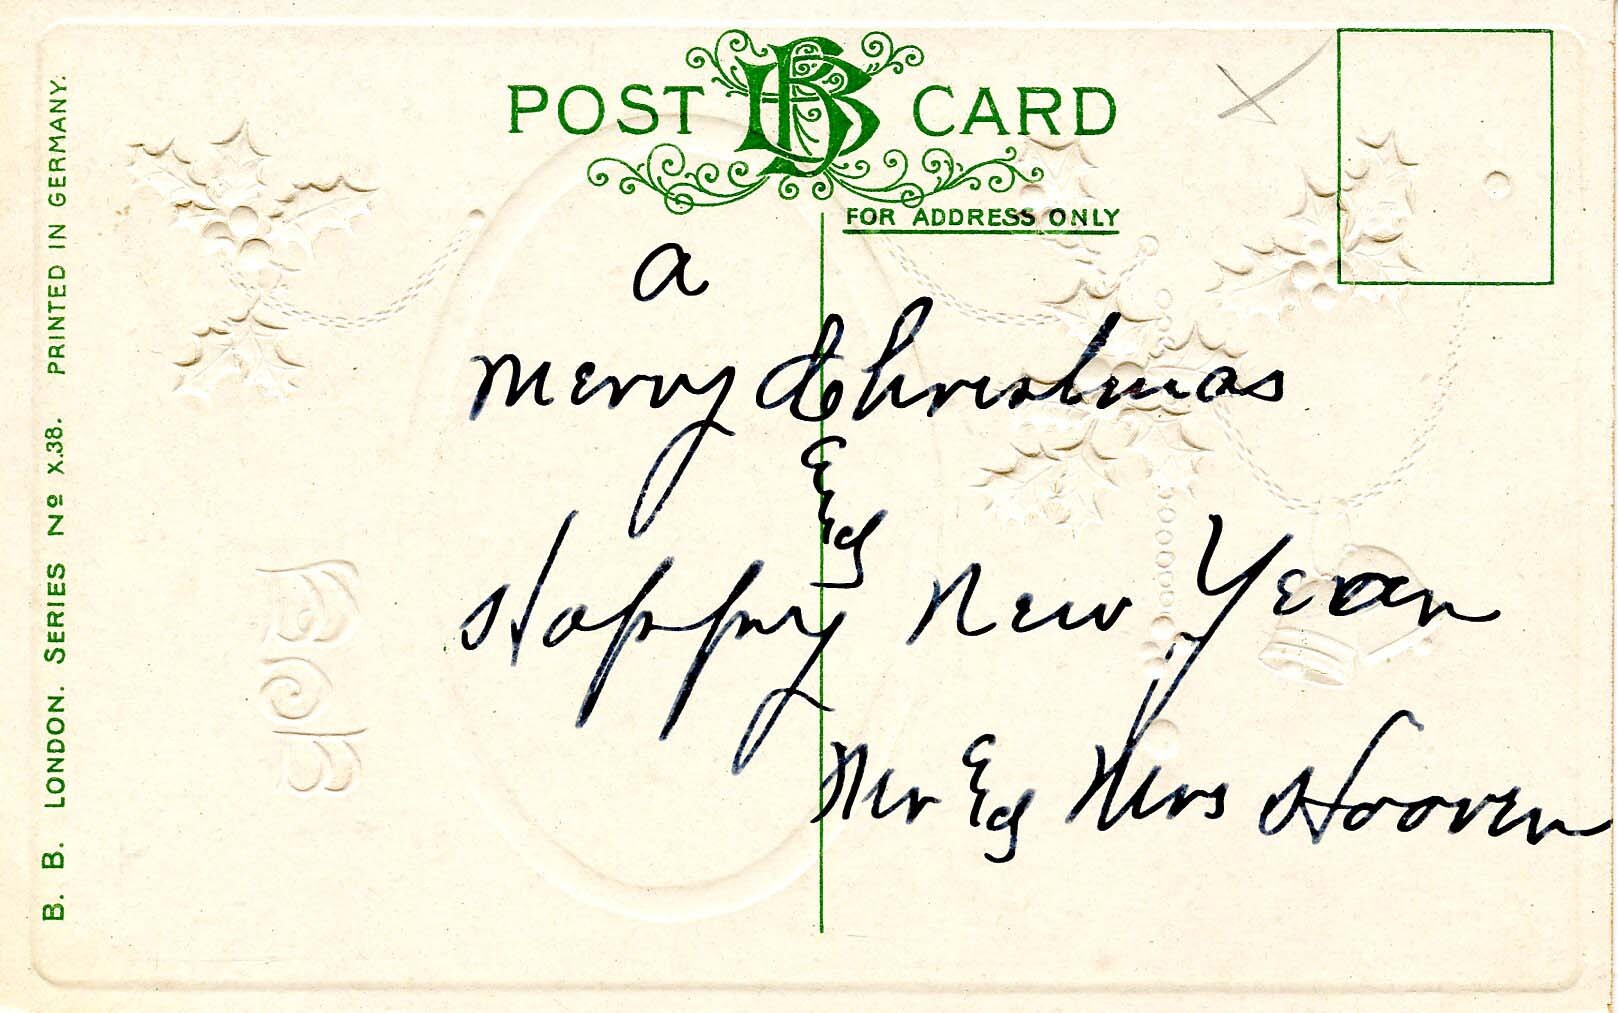 POST BB CARD
FOR ADDRESS ONLY
B. B. LONDON. SERIES Nº X.38. PRINTED IN GERMANY.
a
Merry Christmas
&
Happy New Year
Mr & Mrs Hoover